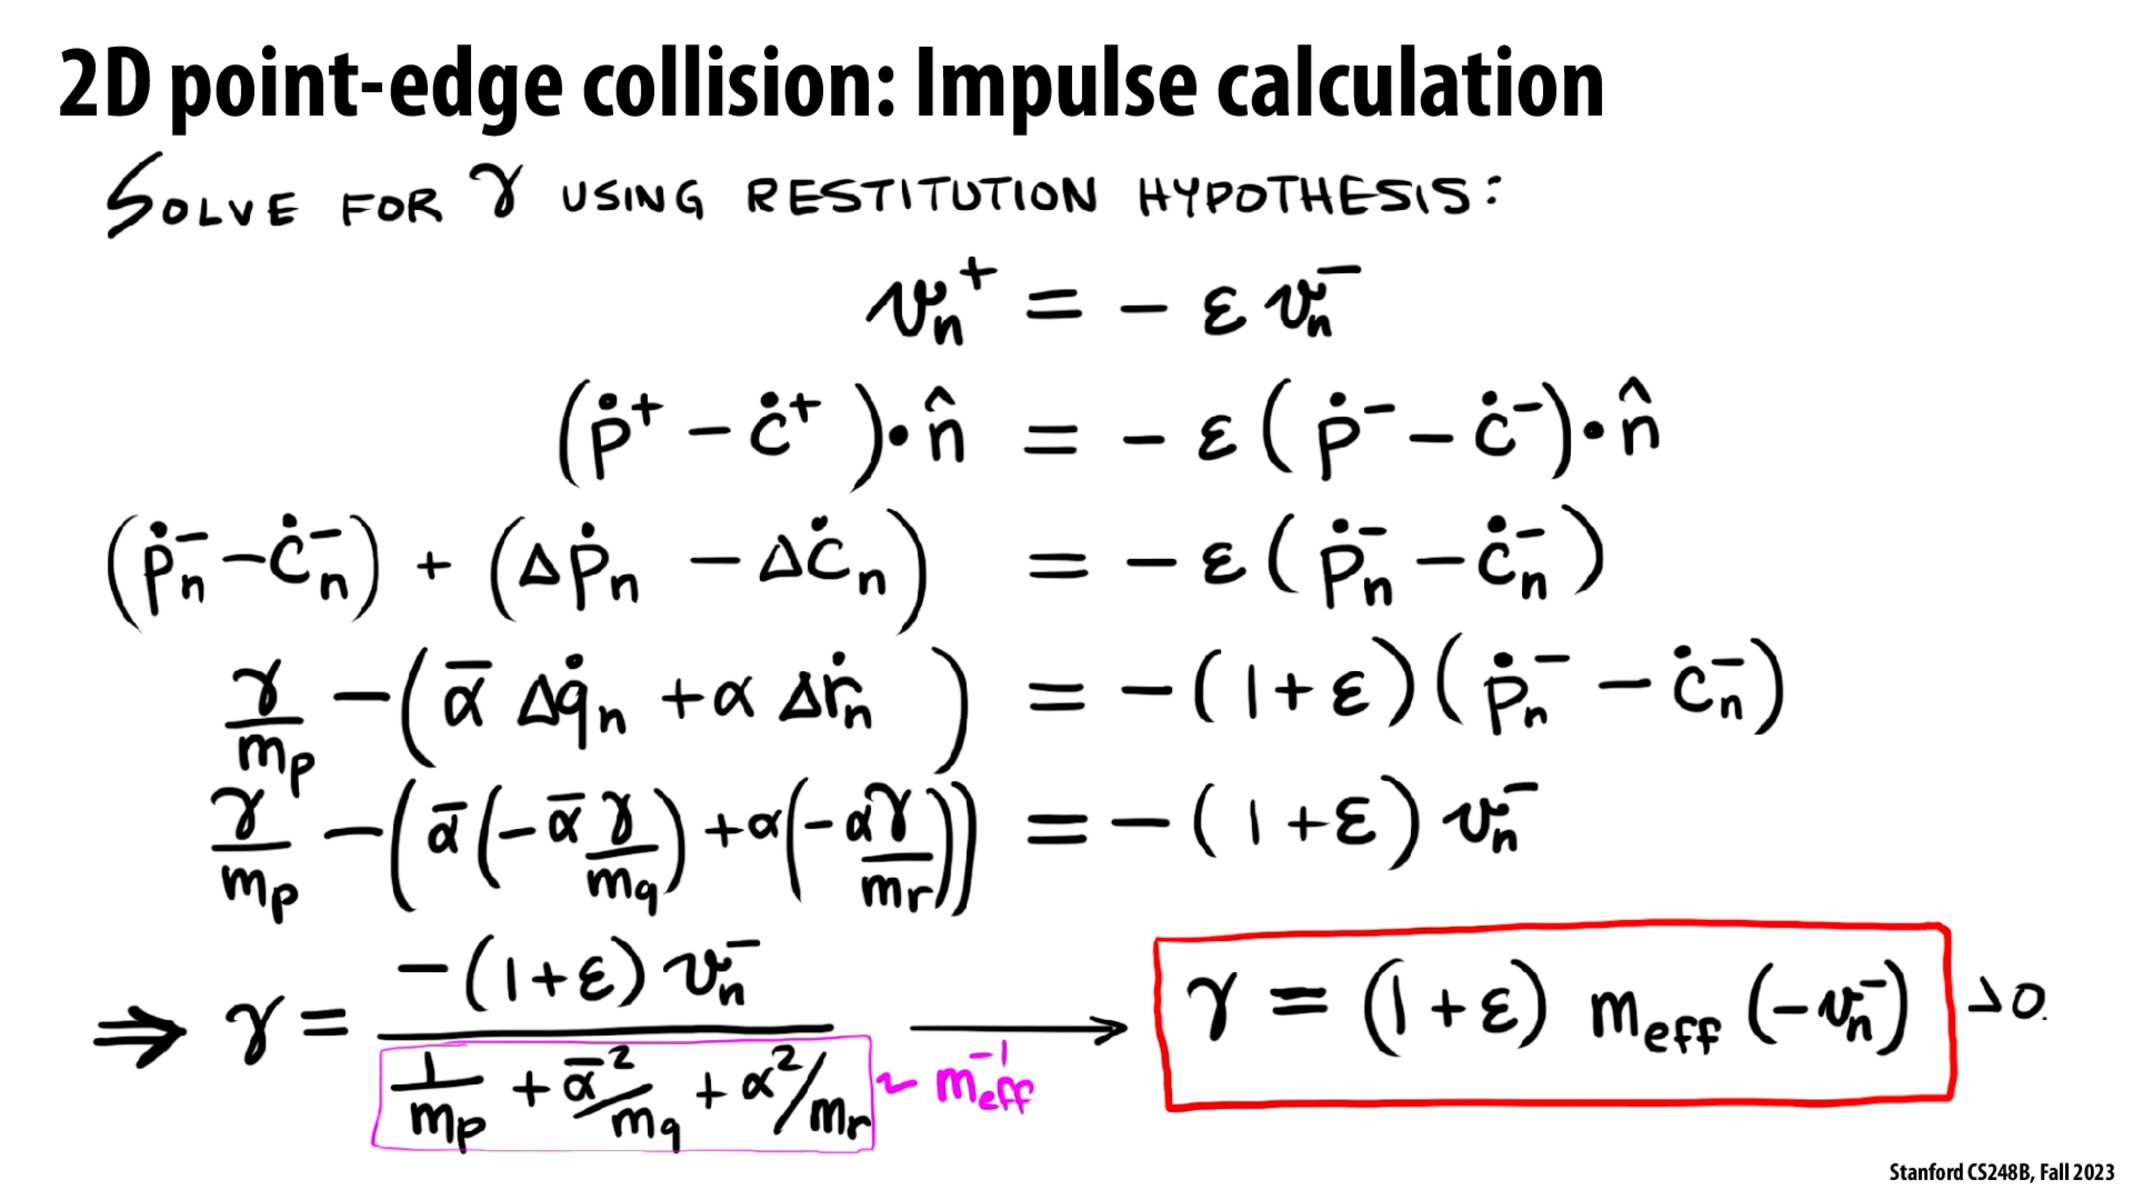 2D point-edge collision: Impulse calculation
SOLVE FOR γ USING RESTITUTION HYPOTHESIS:
vₙ⁺ = − ε vₙ⁻
(ṗ⁺ − ċ⁺)·n̂ = − ε (ṗ⁻ − ċ⁻)·n̂
(ṗₙ⁻ − ċₙ⁻) + (Δṗₙ − Δċₙ) = − ε (ṗₙ⁻ − ċₙ⁻)
γ/mₚ − (ᾱ Δq̇ₙ + α Δṙₙ) = −(1+ε)(ṗₙ⁻ − ċₙ⁻)
γ/mₚ − (ᾱ(−ᾱ γ/m_q) + α(−αγ/m_r)) = −(1+ε) vₙ⁻
⇒ γ = −(1+ε) vₙ⁻ / (1/mₚ + ᾱ²/m_q + α²/m_r) ~ m_eff⁻¹ → γ = (1+ε) m_eff (−vₙ⁻) >0.
Stanford CS248B, Fall 2023